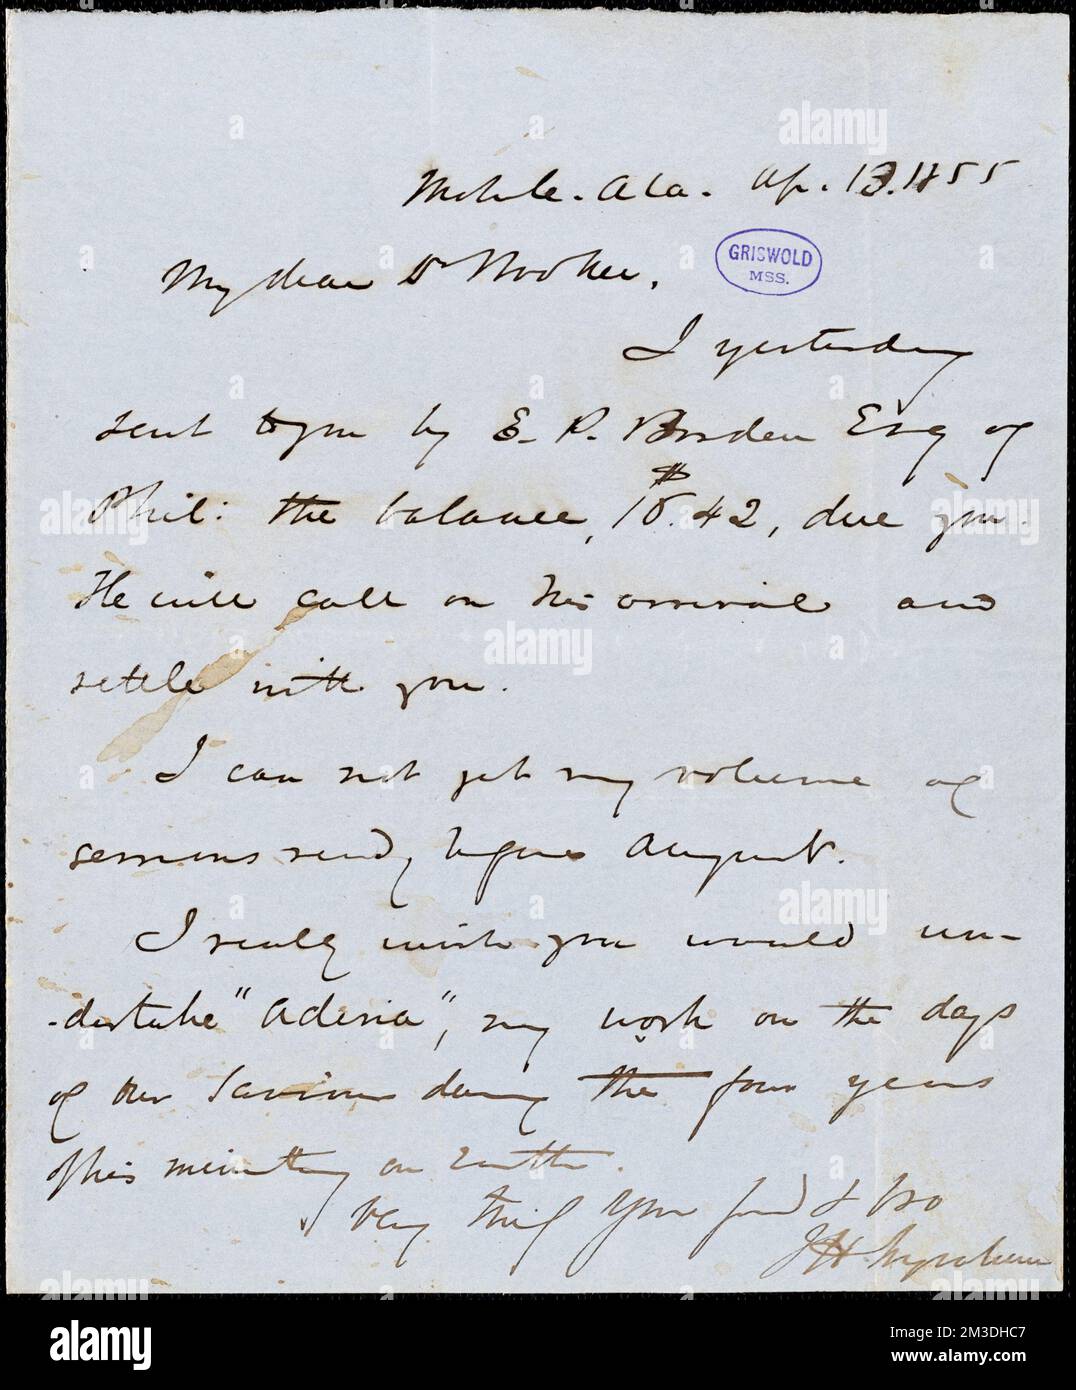 Mobile. Ala. Ap. 13. 1855
My dear Dr Hooker,
GRISWOLD
MSS.
I yesterday
sent to you by E. P. Borden Esq of
Phil: the balance, $18.42, due you.
He will call on his arrival and
settle with you.
I can not get my volume of
sermons ready before August.
I really wish you would un-
-dertake "Adina", my work on the days
of our Saviour during the four years
of his ministry on Earth.
Very truly Your friend & bro
J H Ingraham
alamy
alamy
Image ID: 2M3DHC7
www.alamy.com